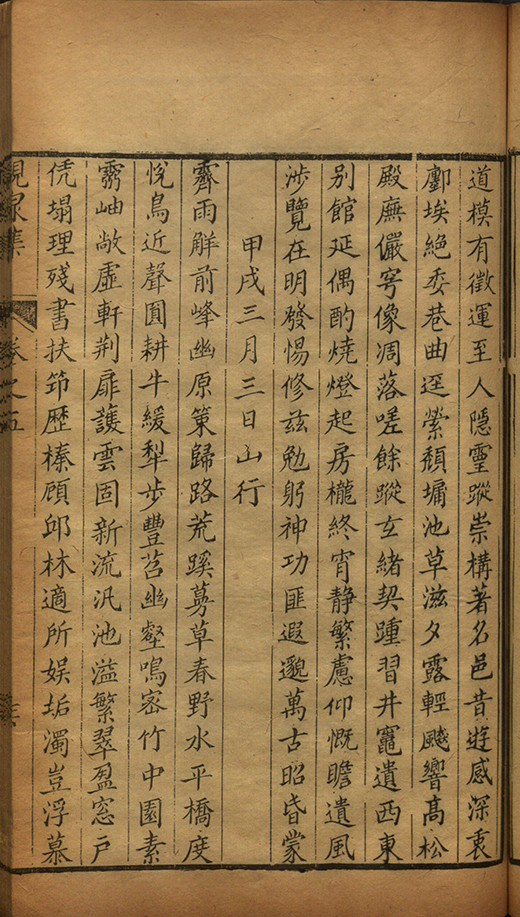 道模有徵運至人隱靈蹤崇構著名邑昔遊感深衷
酆埃絕委巷曲逕縈頹墉池草滋夕露輕飈響高松
殿廡儼穹像凋落嗟餘蹤玄緒契踵習井竈遺西東
別館延偶酌燒燈起房櫳終宵靜繁慮仰慨瞻遺風
渉覽在明發惕修茲勉躬神功匪遐邈萬古昭昏蒙
甲戌三月三日山行
霽雨觧前峰幽原策歸路荒蹊蔓草春野水平橋度
悅鳥近聲圓耕牛緩犁步豐苕幽壑鳴密竹中園素
霧岫敞虛軒荆扉護雲固新流汎池溢繁翠盈窓戶
凭塌理殘書扶筇歷榛顧邱林適所娱垢濁豈浮慕
集 卷之五